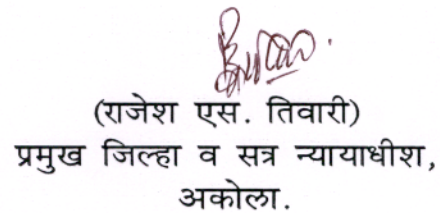 (राजेश एस. तिवारी)
प्रमुख जिल्हा व सत्र न्यायाधीश,
अकोला.